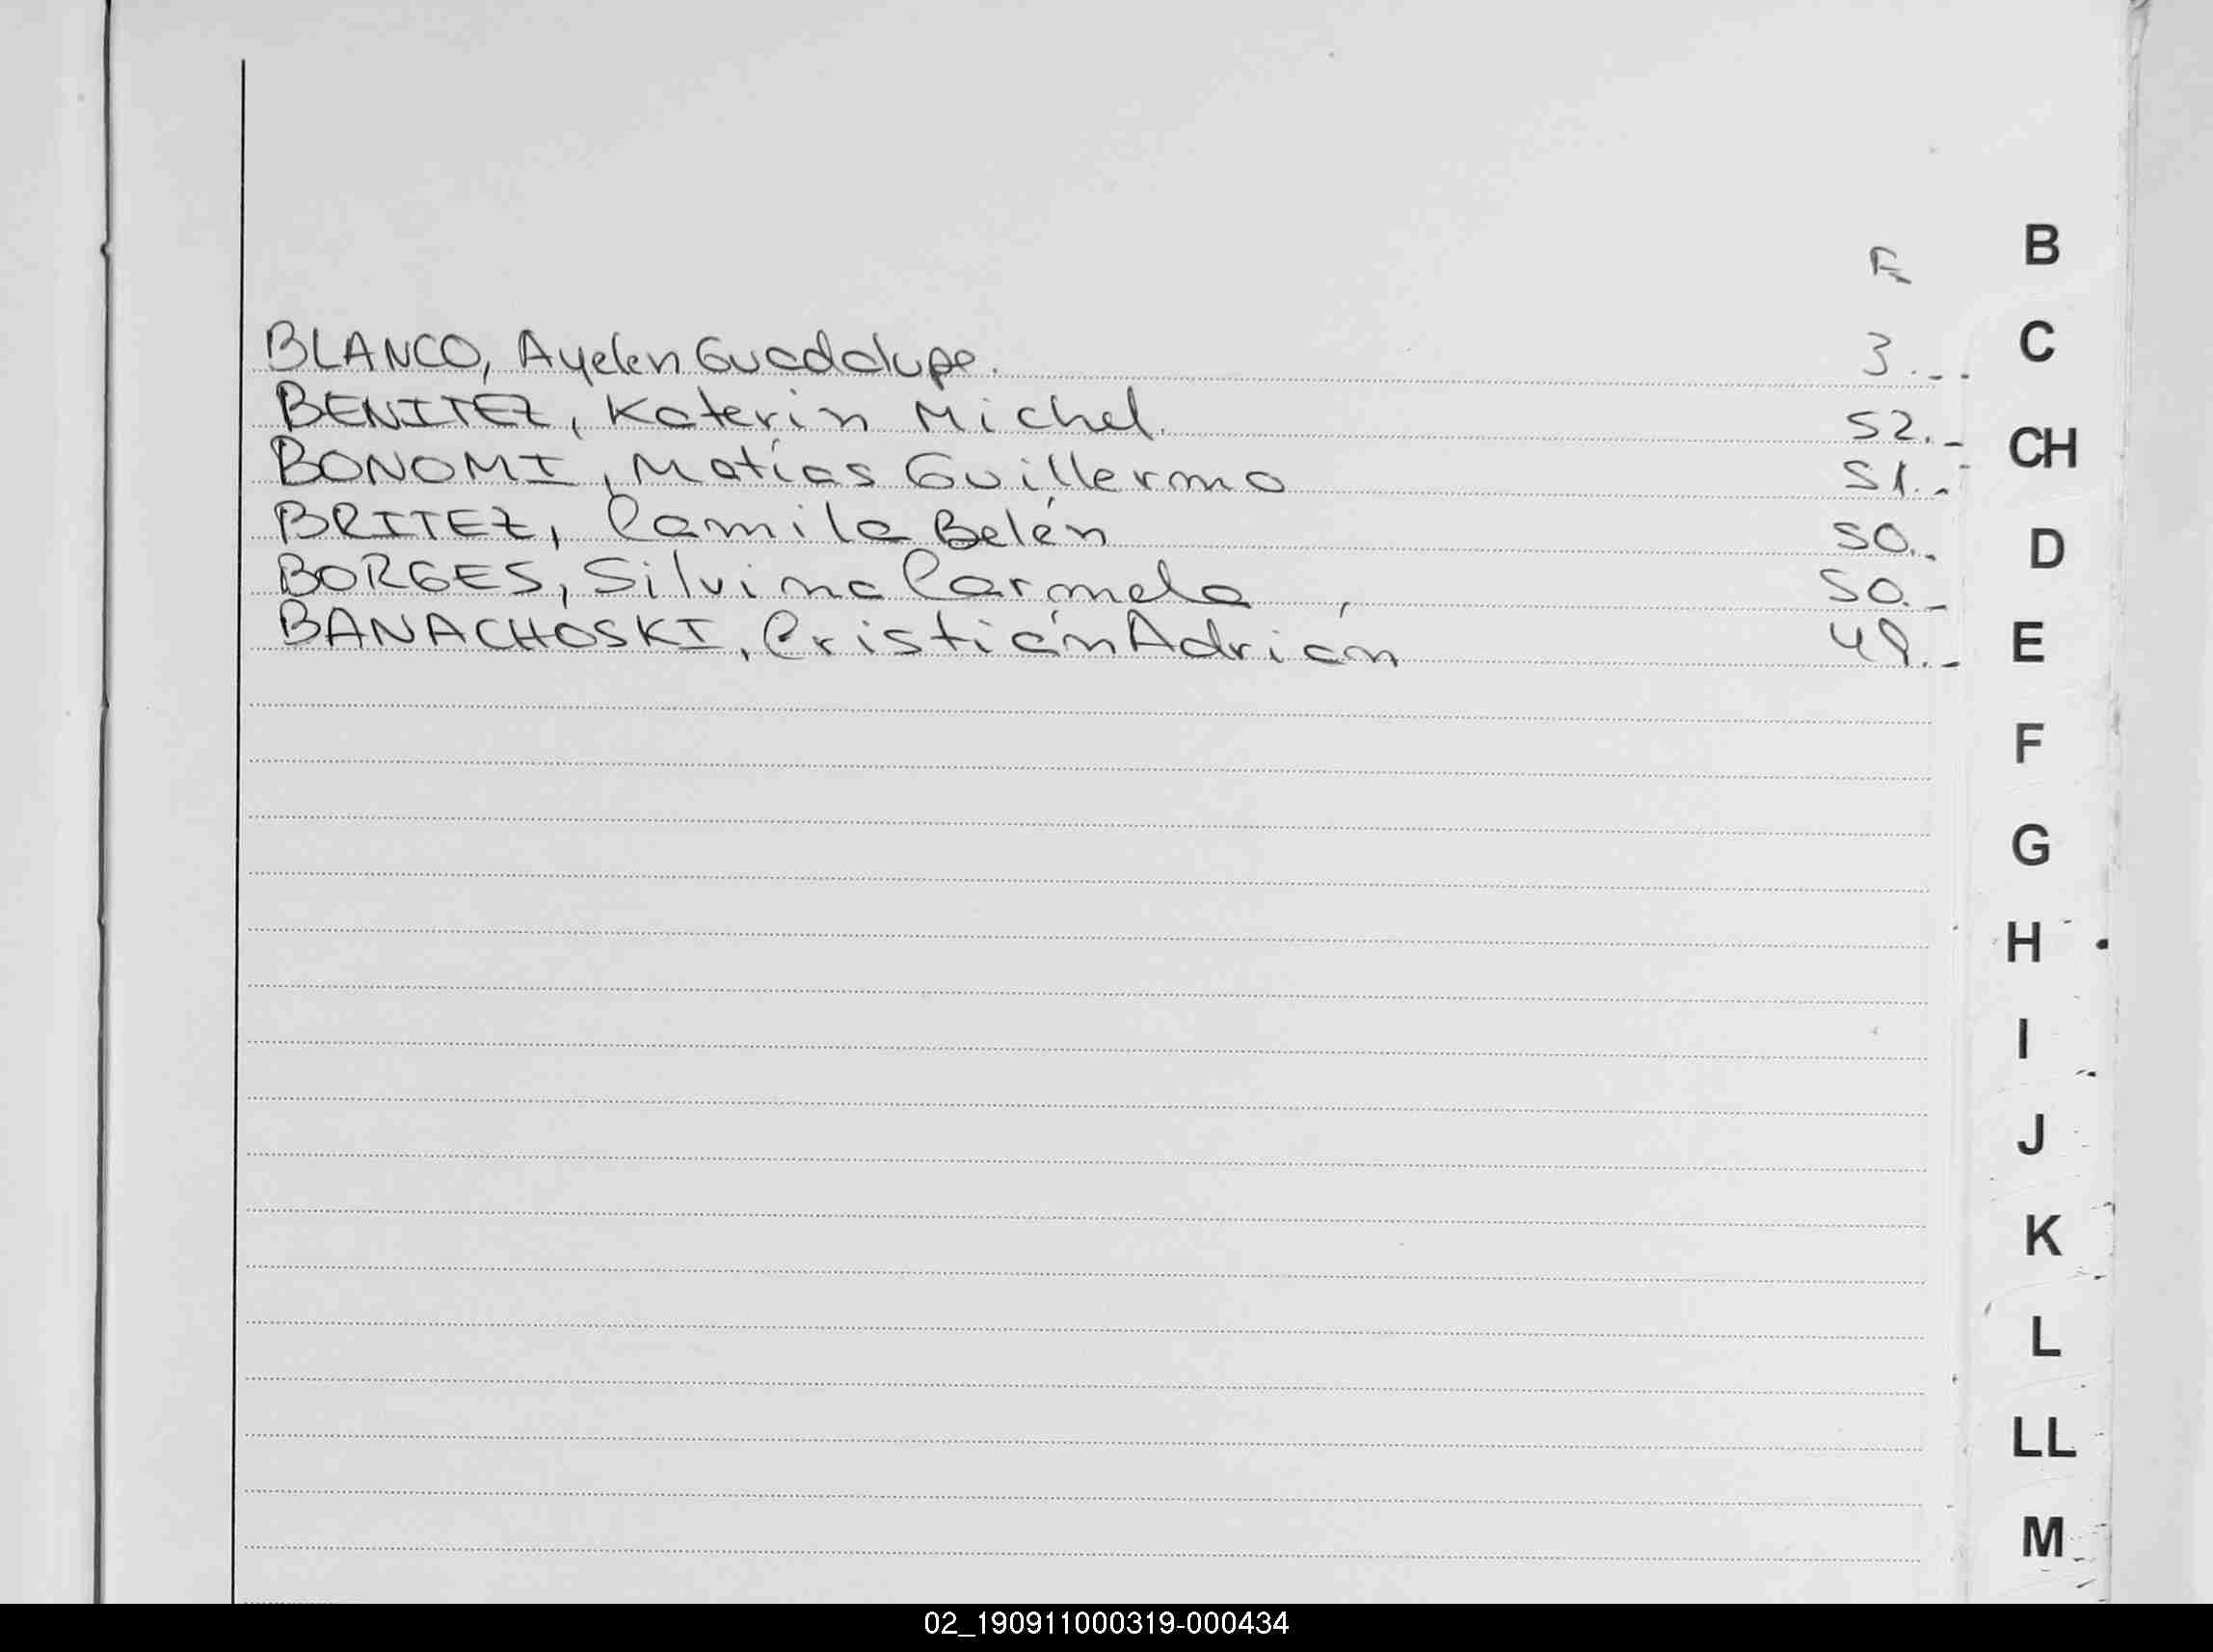 B
F
BLANCO, Ayelen Guadalupe. 3.--
C
BENITEZ, Katerin Michel. 52.-
CH
BONOMI, Matías Guillermo 51.-
BRITEZ, Camila Belén 50.-
D
BORGES, Silvina Carmela 50.-
BANACHOSKI, Cristián Adrián 49.-
E
F
G
H
I
J
K
L
LL
M
02_190911000319-000434